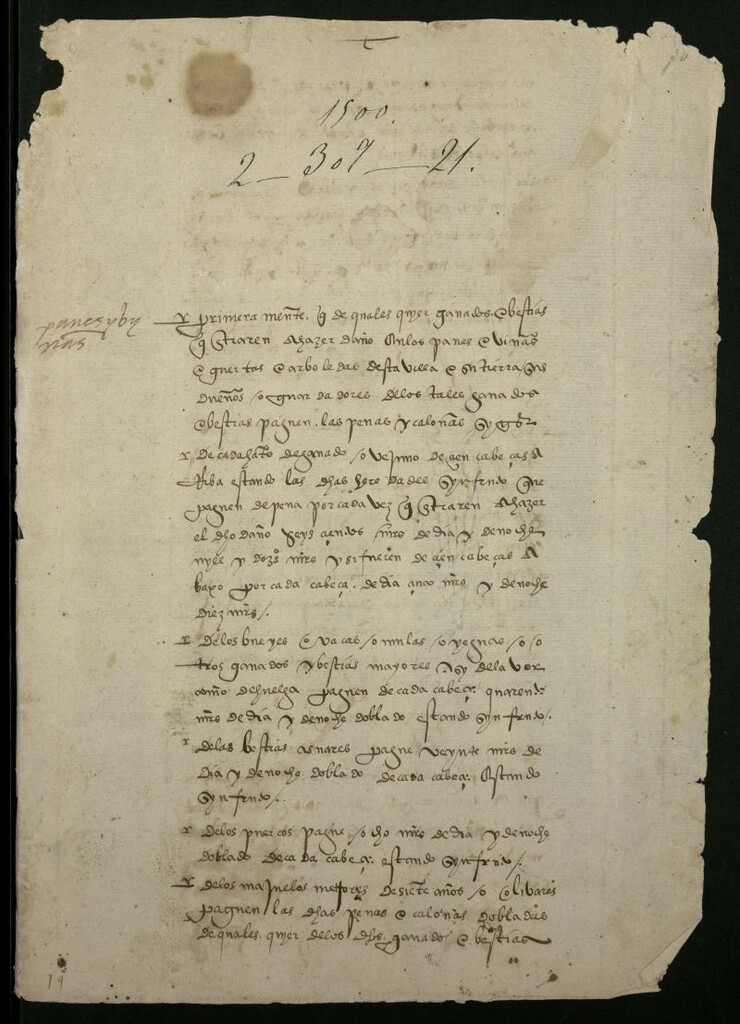 1500.
2 — 307 — 21.
panes y by
nas
primera mente. q̃ de quales quyer ganados e bestias
q̃ entraren a hazer daño en los panes e viñas
e guertas e arboledas desta villa e su tierra sus
dueños / o guardadores de los tales ganados
e bestias paguen. las penas y calonias syg̃s
de cada hato de ganado / o vejuno de çien cabeças a
Riba estando las dhas heredades syn fruto que
paguen de pena por cada vez q̃ entraren a hazer
el dho daño seys çientos mrs de dia y de noche
myll y dozos mrs y si fueren de çien cabeças a
baxo por cada cabeça. de dia çinco mrs y de noche
diez mrs /.
de los bueyes e vacas / o mulas / o yeguas / o o
tros ganados y bestias mayores asy de lavor
como de huelga paguen de cada cabeça quarenta
mrs de dia y de noche doblado estando syn fruto /.
de las bestias asnares pague veynte mrs de
dia y de noche doblado de cada cabeça estando
syn fruto /.
de los puercos pague / ocho mrs de dia y de noche
doblado de cada cabeça estando syn fruto /.
de los majuelos de siete años / o olivares
paguen las dhas penas e calonias dobladas
de quales quyer de los dhos ganados e bestias
19